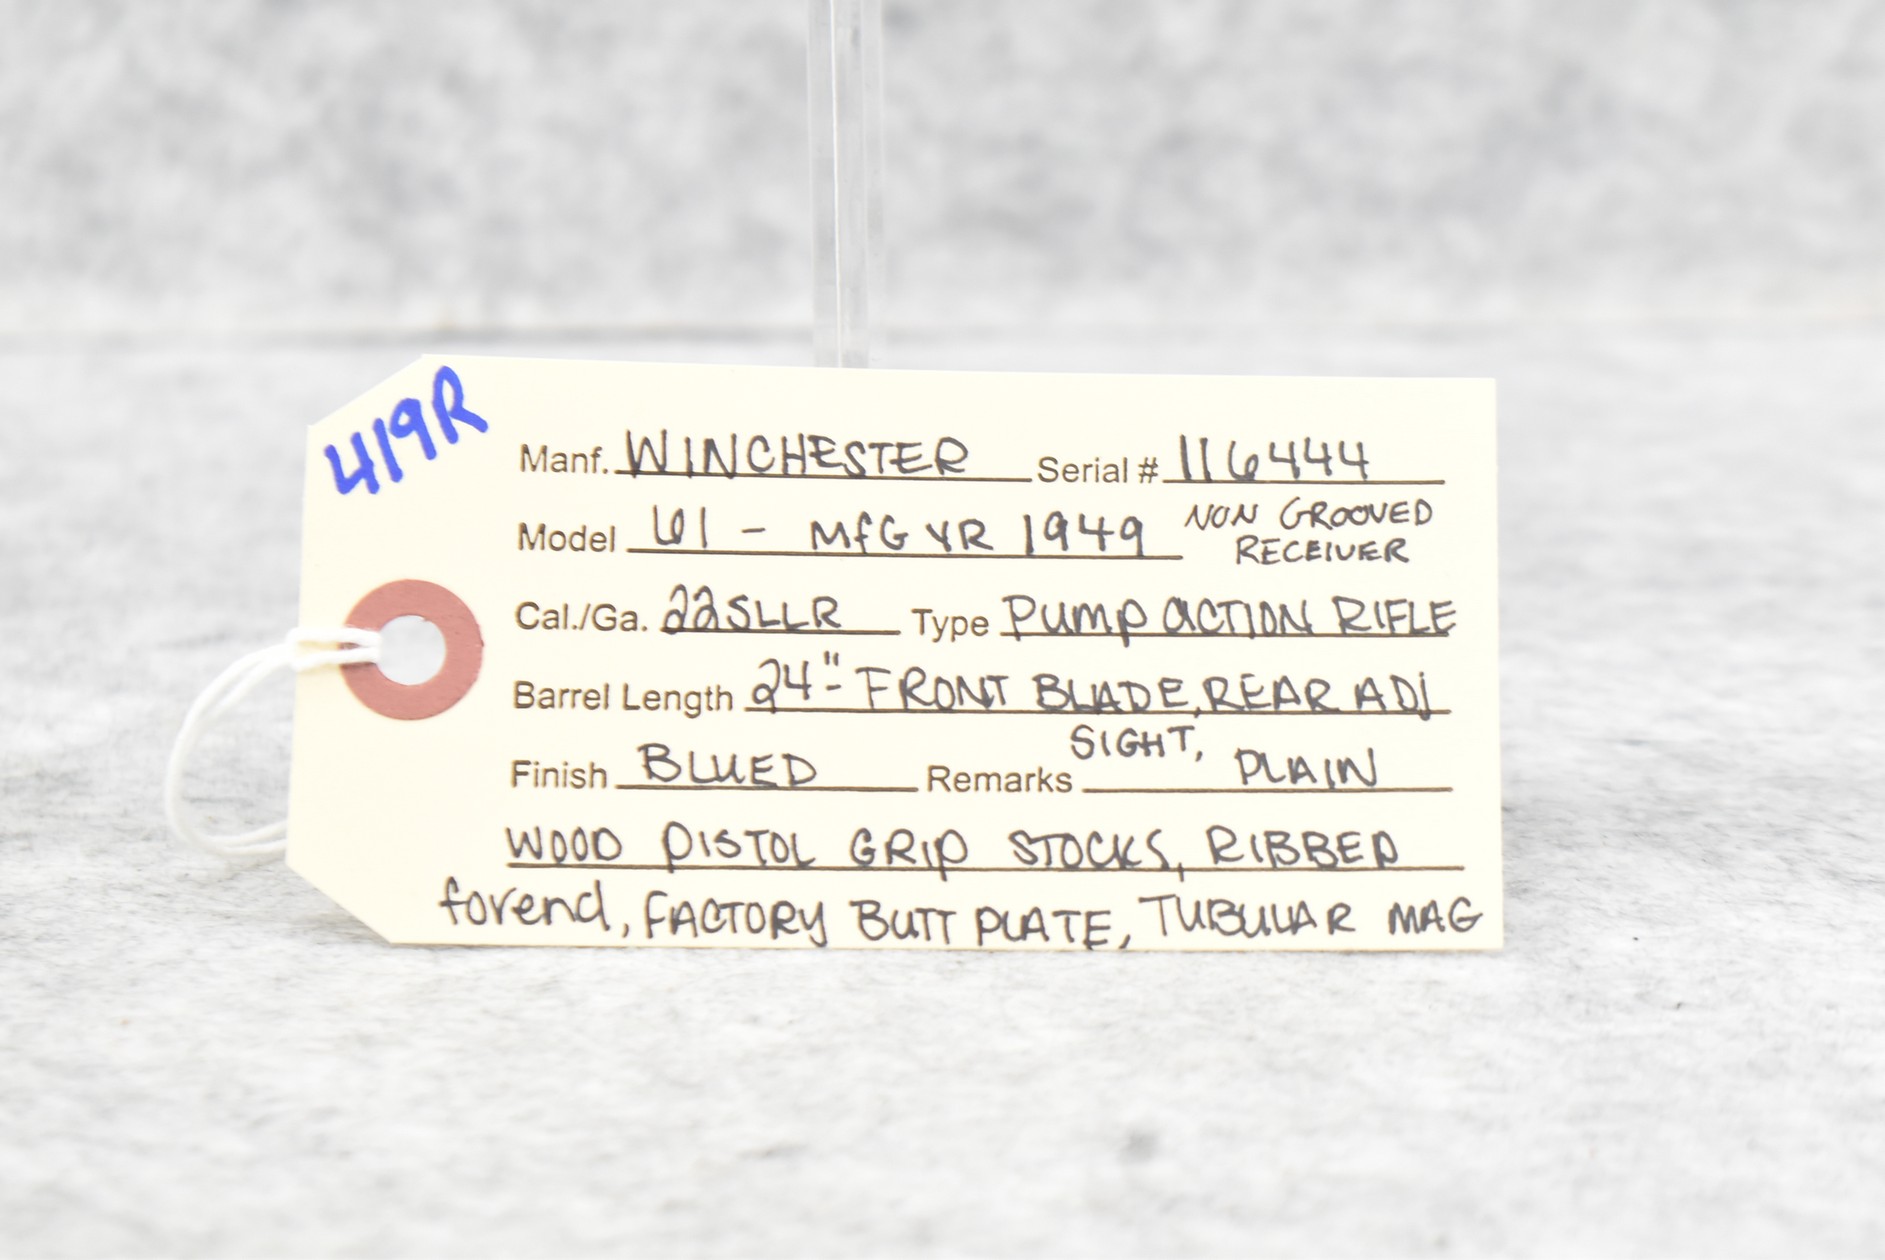 419R
Manf. WINCHESTER Serial # 116444
Model 61 - MFG YR 1949 NON GROOVED
RECEIVER
Cal./Ga. 22SLLR Type PUMP ACTION RIFLE
Barrel Length 24" - FRONT BLADE, REAR ADJ
SIGHT,
Finish BLUED Remarks PLAIN
WOOD PISTOL GRIP STOCKS, RIBBED
forend, FACTORY BUTT PLATE, TUBULAR MAG